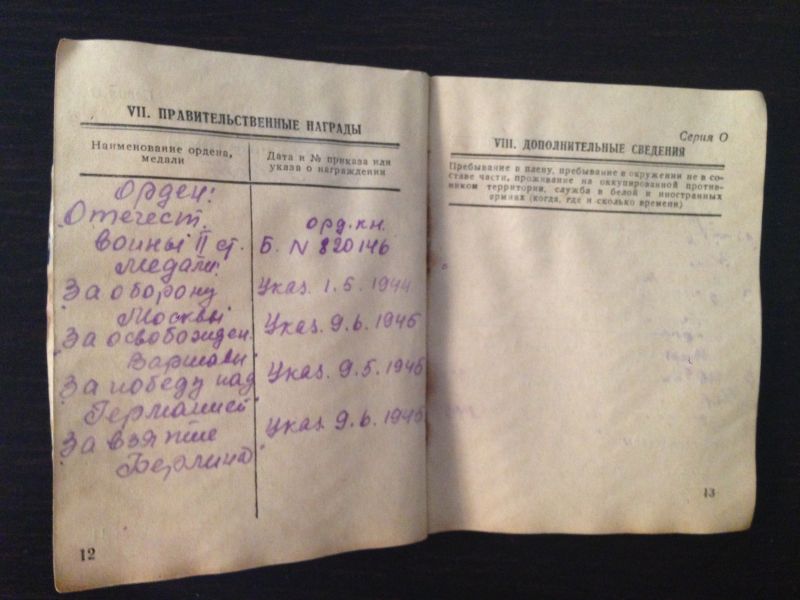 VII. ПРАВИТЕЛЬСТВЕННЫЕ НАГРАДЫ
Наименование ордена, медали
Дата и № приказа или указа о награждении
Орден:
Отечест. орд. кн.
войны II ст. Б. N 820146
Медали:
За оборону Указ. 1.5.1944
Москвы
За освобожден. Указ. 9.6.1945
Варшавы
За победу над Указ. 9.5.1945
Германией
За взятие Указ. 9.6.1945
Берлина
12
Серия О
VIII. ДОПОЛНИТЕЛЬНЫЕ СВЕДЕНИЯ
Пребывание в плену, пребывание в окружении не в со-
ставе части, проживание на оккупированной против-
ником территории, служба в белой и иностранных
армиях (когда, где и сколько времени)
13